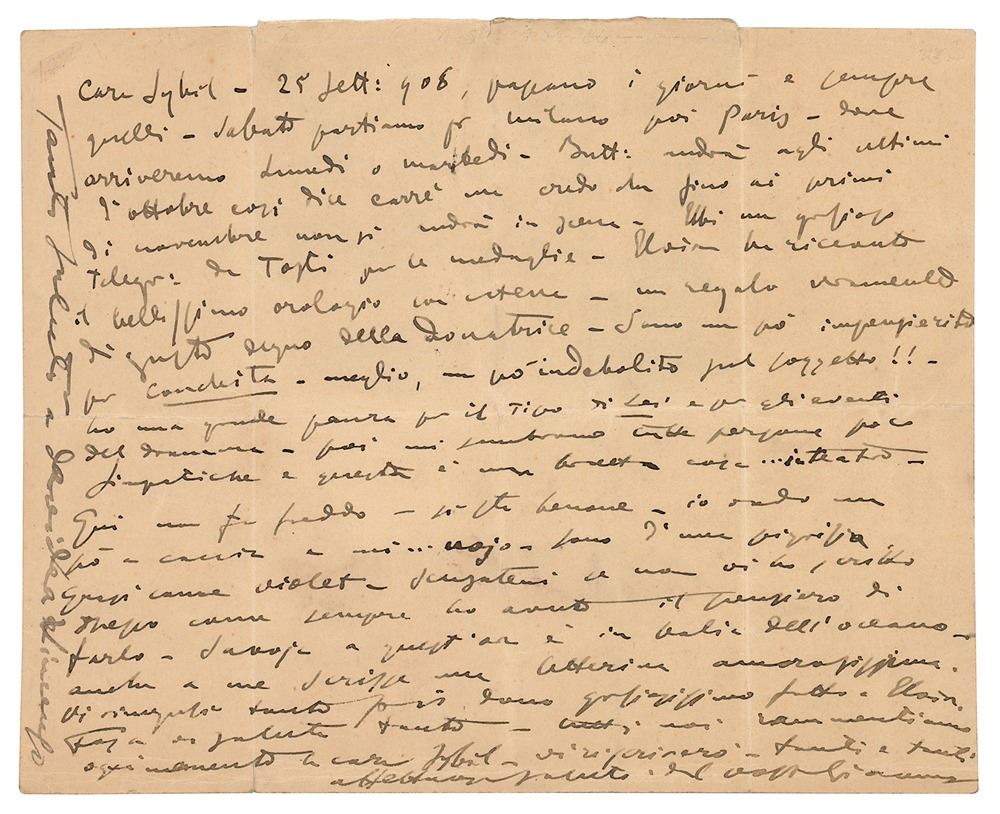 Cara Sybil – 25 Sett: 906, passano i giorni e sempre
quelli – Sabato partiamo pr Milano poi Paris – dove
arriveremo lunedì o martedì – Butt: andrà agli ultimi
d'ottobre così dice Carré ma credo che fino ai primi
di novembre non si andrà in scena – Ebbi un grazioso
telegr: da Tosti per le medaglie – Elvira ha ricevuto
il bellissimo orologio con catena – un regalo veramente
di gusto degno della Donatrice – Sono un pò impensierito
per Conchita – meglio, un pò indebolito sul soggetto!! –
ho una grande paura per il tipo di Lei e per gli eventi
del dramma – poi mi sembrano tutte persone poco
simpatiche e questa è una brutta cosa ... in teatro –
Qui non fa freddo – si sta benone – io vado un
pò a caccia e mi ... nojo – sono d'una pigrizia
quasi come violet – Scusatemi se non vi ho scritto
spesso come sempre ho avuto il pensiero di
farlo – Savoja a quest'ora è in balia dell'oceano –
anche a me scrisse una letterina amorosissima.
Vi ringrazia tanto pel dono graziosissimo fatto a Elvira
Fosca vi saluta tanto – tutti noi rammentiamo
ogni momento la cara Sybil – vi riscriverò – tanti e tanti
affettuosi saluti del vostro Giacomo
Tanti saluti a David e a Vincenzo